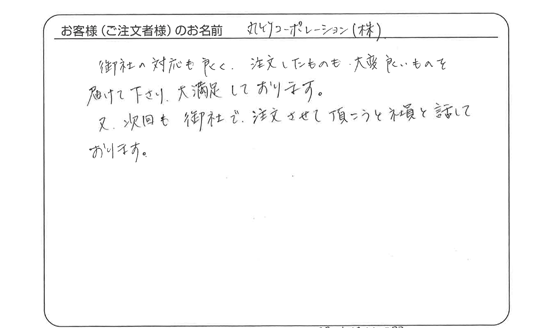 お客様(ご注文者様)のお名前 コーポレーション(株)
御社の対応も良く、注文したものも、大変良いものを
届けて下さり、大満足しております。
又、次回も御社で、注文させて頂こうと社員と話して
おります。